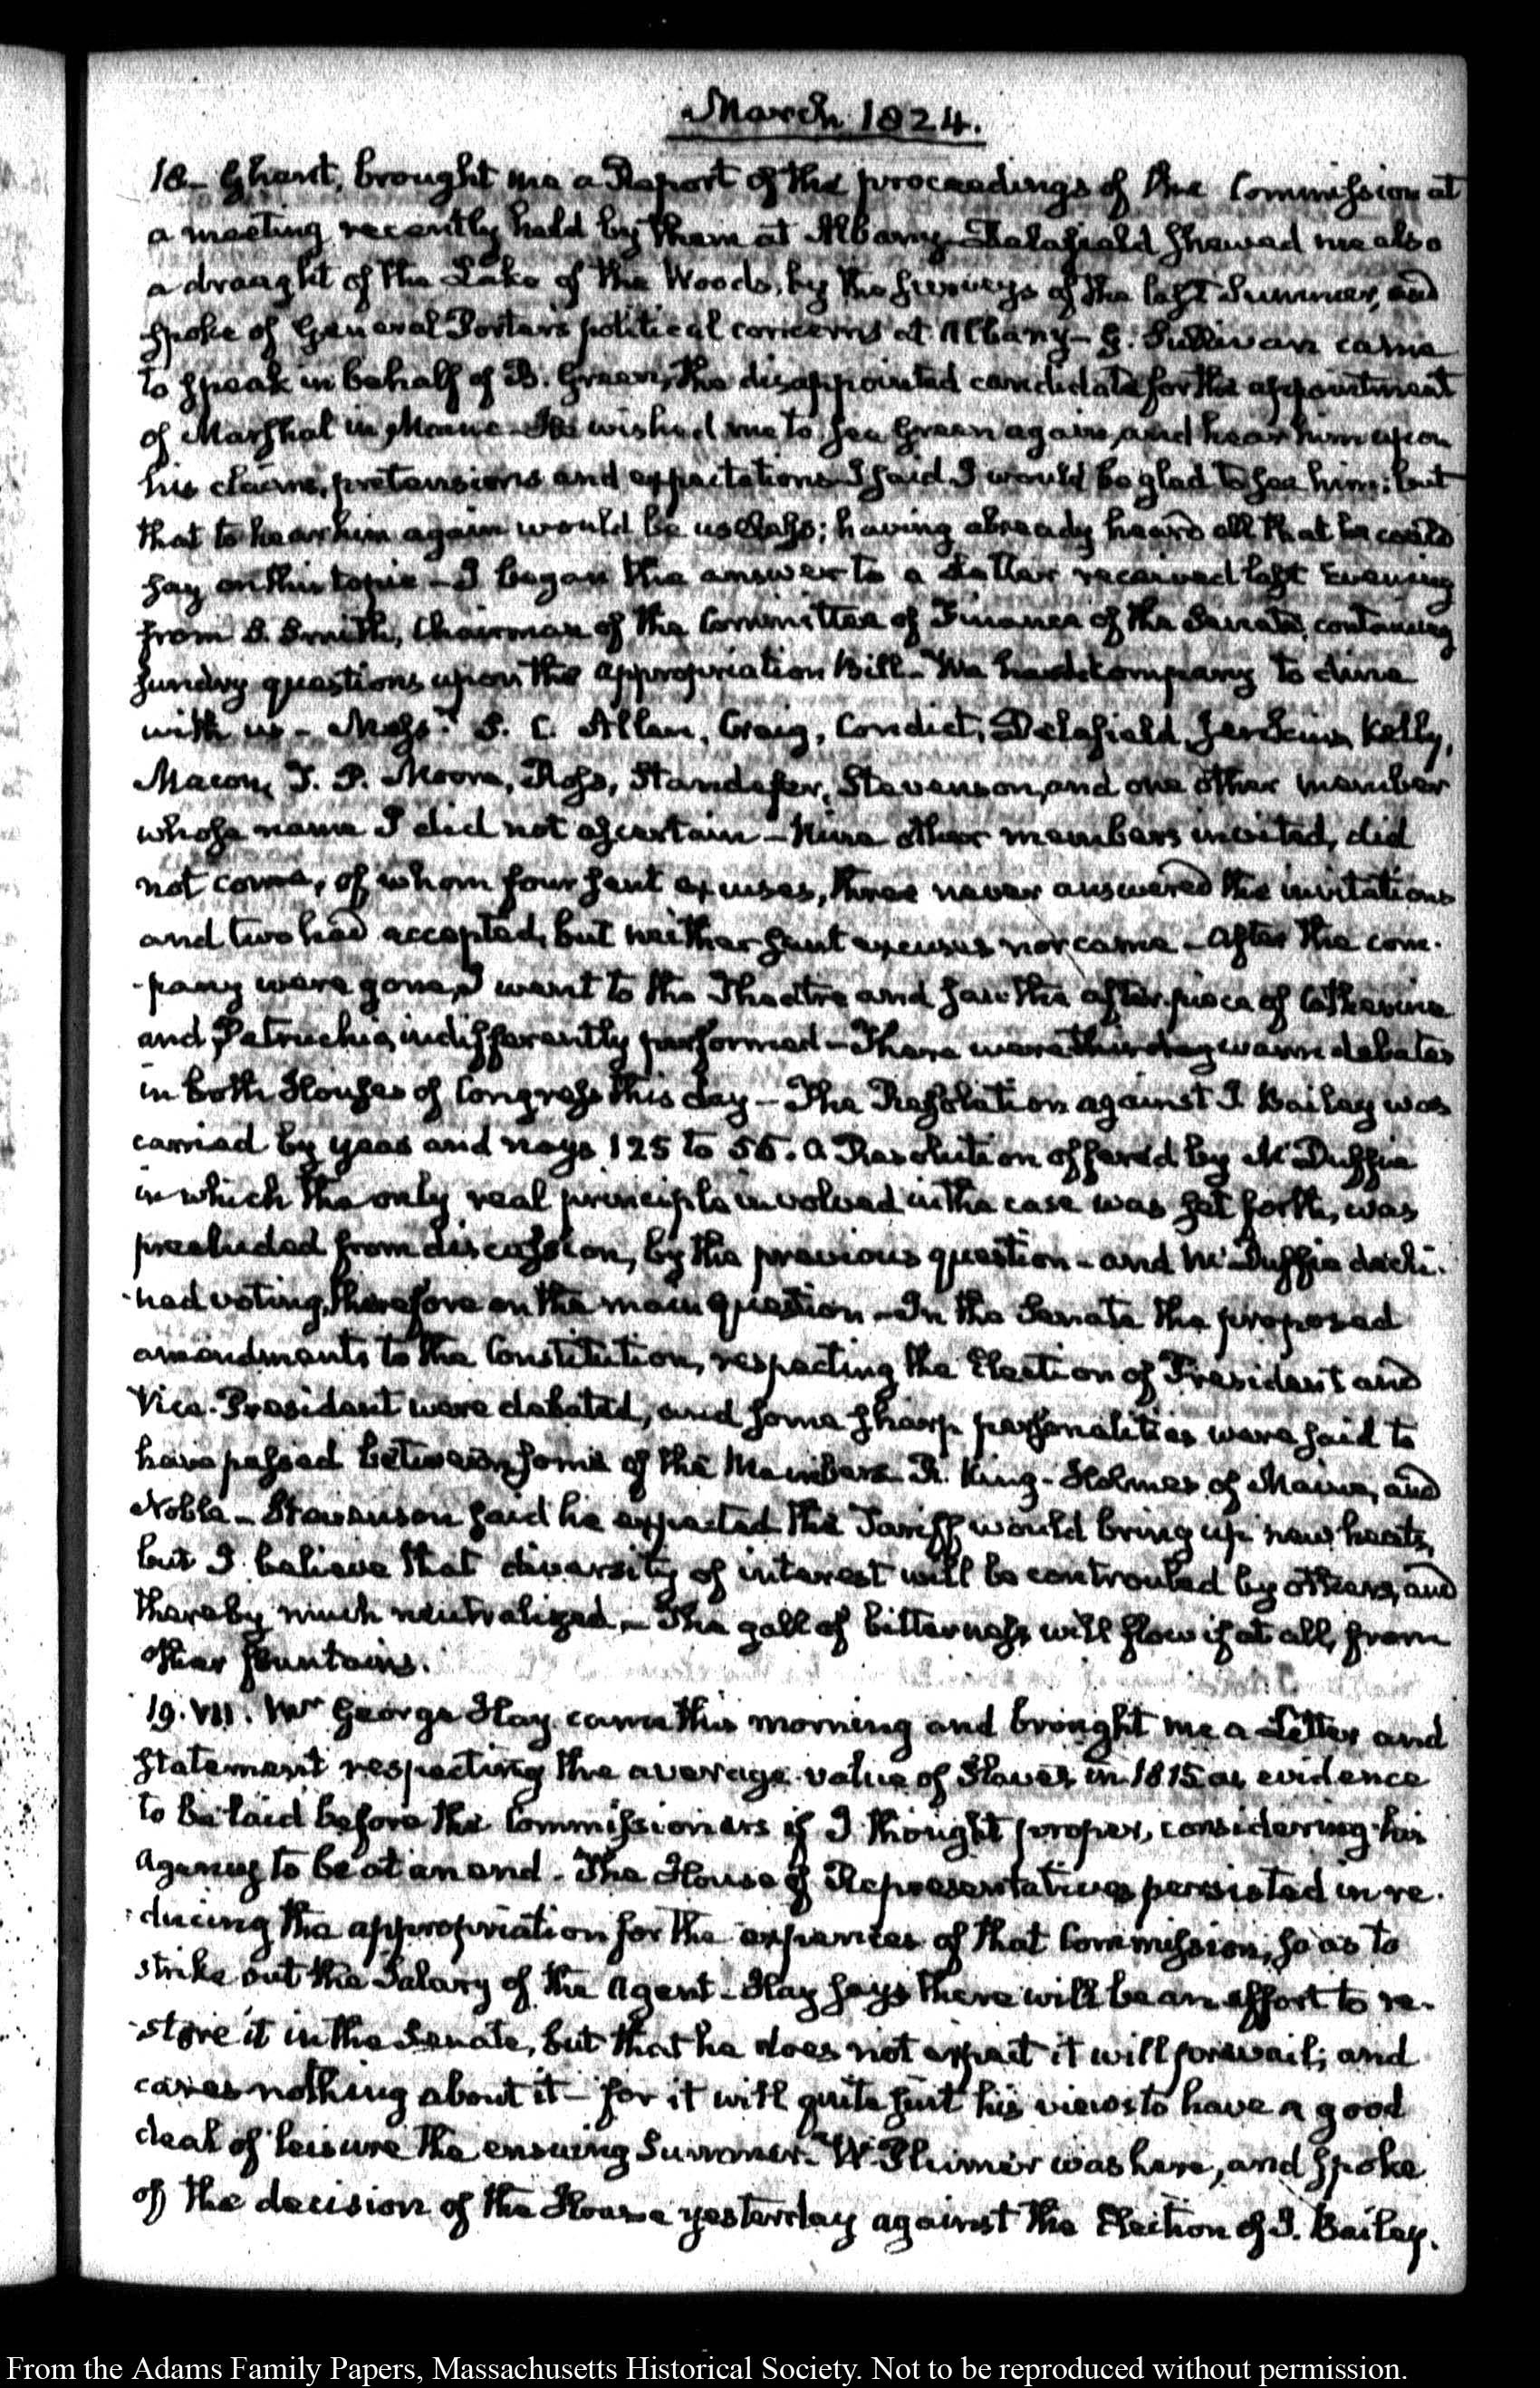 March 1824.
18- Ghent, brought me a Report of the proceedings of the Commission at
a meeting recently held by them at Albany- Delafield shewed me also
a draught of the Lake of the Woods, by the surveys of the last Summer, and
spoke of General Porter's political concerns at Albany- G. Sullivan came
to speak in behalf of B. Green, the disappointed candidate for the appointment
of Marshal in Maine- He wished me to see Green again, and hear him upon
his claims, pretensions and expectations- I said I would be glad to see him; but
that to hear him again would be useless; having already heard all that he could
say on this topic- I began the answer to a Letter received last Evening
from S. Smith, Chairman of the Committee of Finance of the Senate, containing
sundry questions upon the appropriation Bill- We had company to dine
with us- Messrs. S. C. Allen, Craig, Condict, Delafield, Jenkins, Kelly,
Macon, T. P. Moore, Ross, Standefer, Stevenson, and one other member
whose name I did not ascertain- Nine other members invited, did
not come, of whom four sent excuses, three never answered the invitations
and two had accepted, but neither sent excuses nor came- After the com-
-pany were gone, I went to the Theatre and saw the after-piece of Catherine
and Petruchio, indifferently performed- There were warm debates
in both Houses of Congress this day- The Resolution against J. Bailey was
carried by yeas and nays 125 to 55. A Resolution offered by McDuffie
in which the only real principle involved in the case was set forth, was
precluded from discussion, by the previous question- and McDuffie decli-
-ned voting, therefore on the main question- In the Senate the proposed
amendments to the Constitution, respecting the Election of President and
Vice-President were debated, and some sharp personalities were said to
have passed between some of the Members- R. King- Holmes of Maine, and
Noble- Stevenson said he expected the Tariff would bring up new heats,
but I believe that diversity of interest will be controuled by others, and
thereby much neutralized.- The gall of bitterness will flow if at all, from
other fountains.
19. VII. Mr George Hay came this morning and brought me a Letter and
Statement respecting the average value of Slaves in 1815 as evidence
to be laid before the Commissioners if I thought proper, considering his
Agency to be at an end- The House of Representatives persisted in re-
-ducing the appropriation for the expences of that Commission, so as to
strike out the Salary of the Agent- Hay says there will be an effort to re-
-store it in the Senate, but that he does not expect it will prevail; and
cares nothing about it- for it will quite suit his views to have a good
deal of leisure the ensuing Summer- W. Plumer was here, and spoke
of the decision of the House yesterday against the Election of J. Bailey.
From the Adams Family Papers, Massachusetts Historical Society. Not to be reproduced without permission.